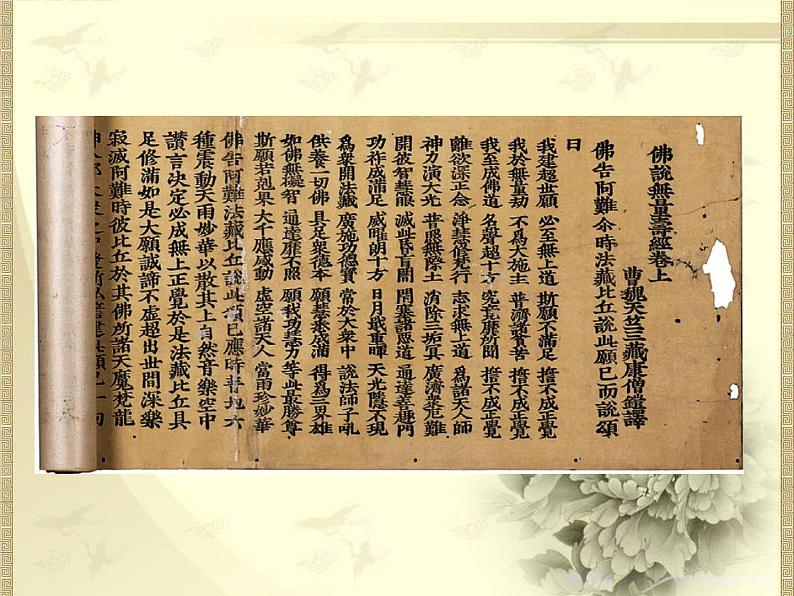 佛說無量壽經卷上
曹魏天竺三藏康僧鎧譯
佛告阿難尒時法藏比丘說此願已而說頌
曰
我建超世願 必至無上道 斯願不滿足 誓不成正覺
我於無量劫 不為大施主 普濟諸貧苦 誓不成正覺
我至成佛道 名聲超十方 究竟靡所聞 誓不成正覺
離欲深正念 淨慧修梵行 志求無上道 為諸天人師
神力演大光 普照無際土 消除三垢冥 廣濟衆厄難
開彼智慧眼 滅此昏盲闇 閉塞諸惡道 通達善趣門
功祚成滿足 威曜朗十方 日月戢重暉 天光隱不現
為衆開法藏 廣施功德寶 常於大衆中 說法師子吼
供養一切佛 具足衆德本 願慧悉成滿 得為三界雄
如佛無礙智 通達靡不照 願我功慧力 等此最勝尊
斯願若剋果 大千應感動 虛空諸天人 當雨珍妙華
佛告阿難法藏比丘說此頌已應時普地六
種震動天雨妙華以散其上自然音樂空中
讚言決定必成無上正覺於是法藏比丘具
足修滿如是大願誠諦不虛超出世間深樂
寂滅阿難時彼比丘於其佛所諸天魔梵龍